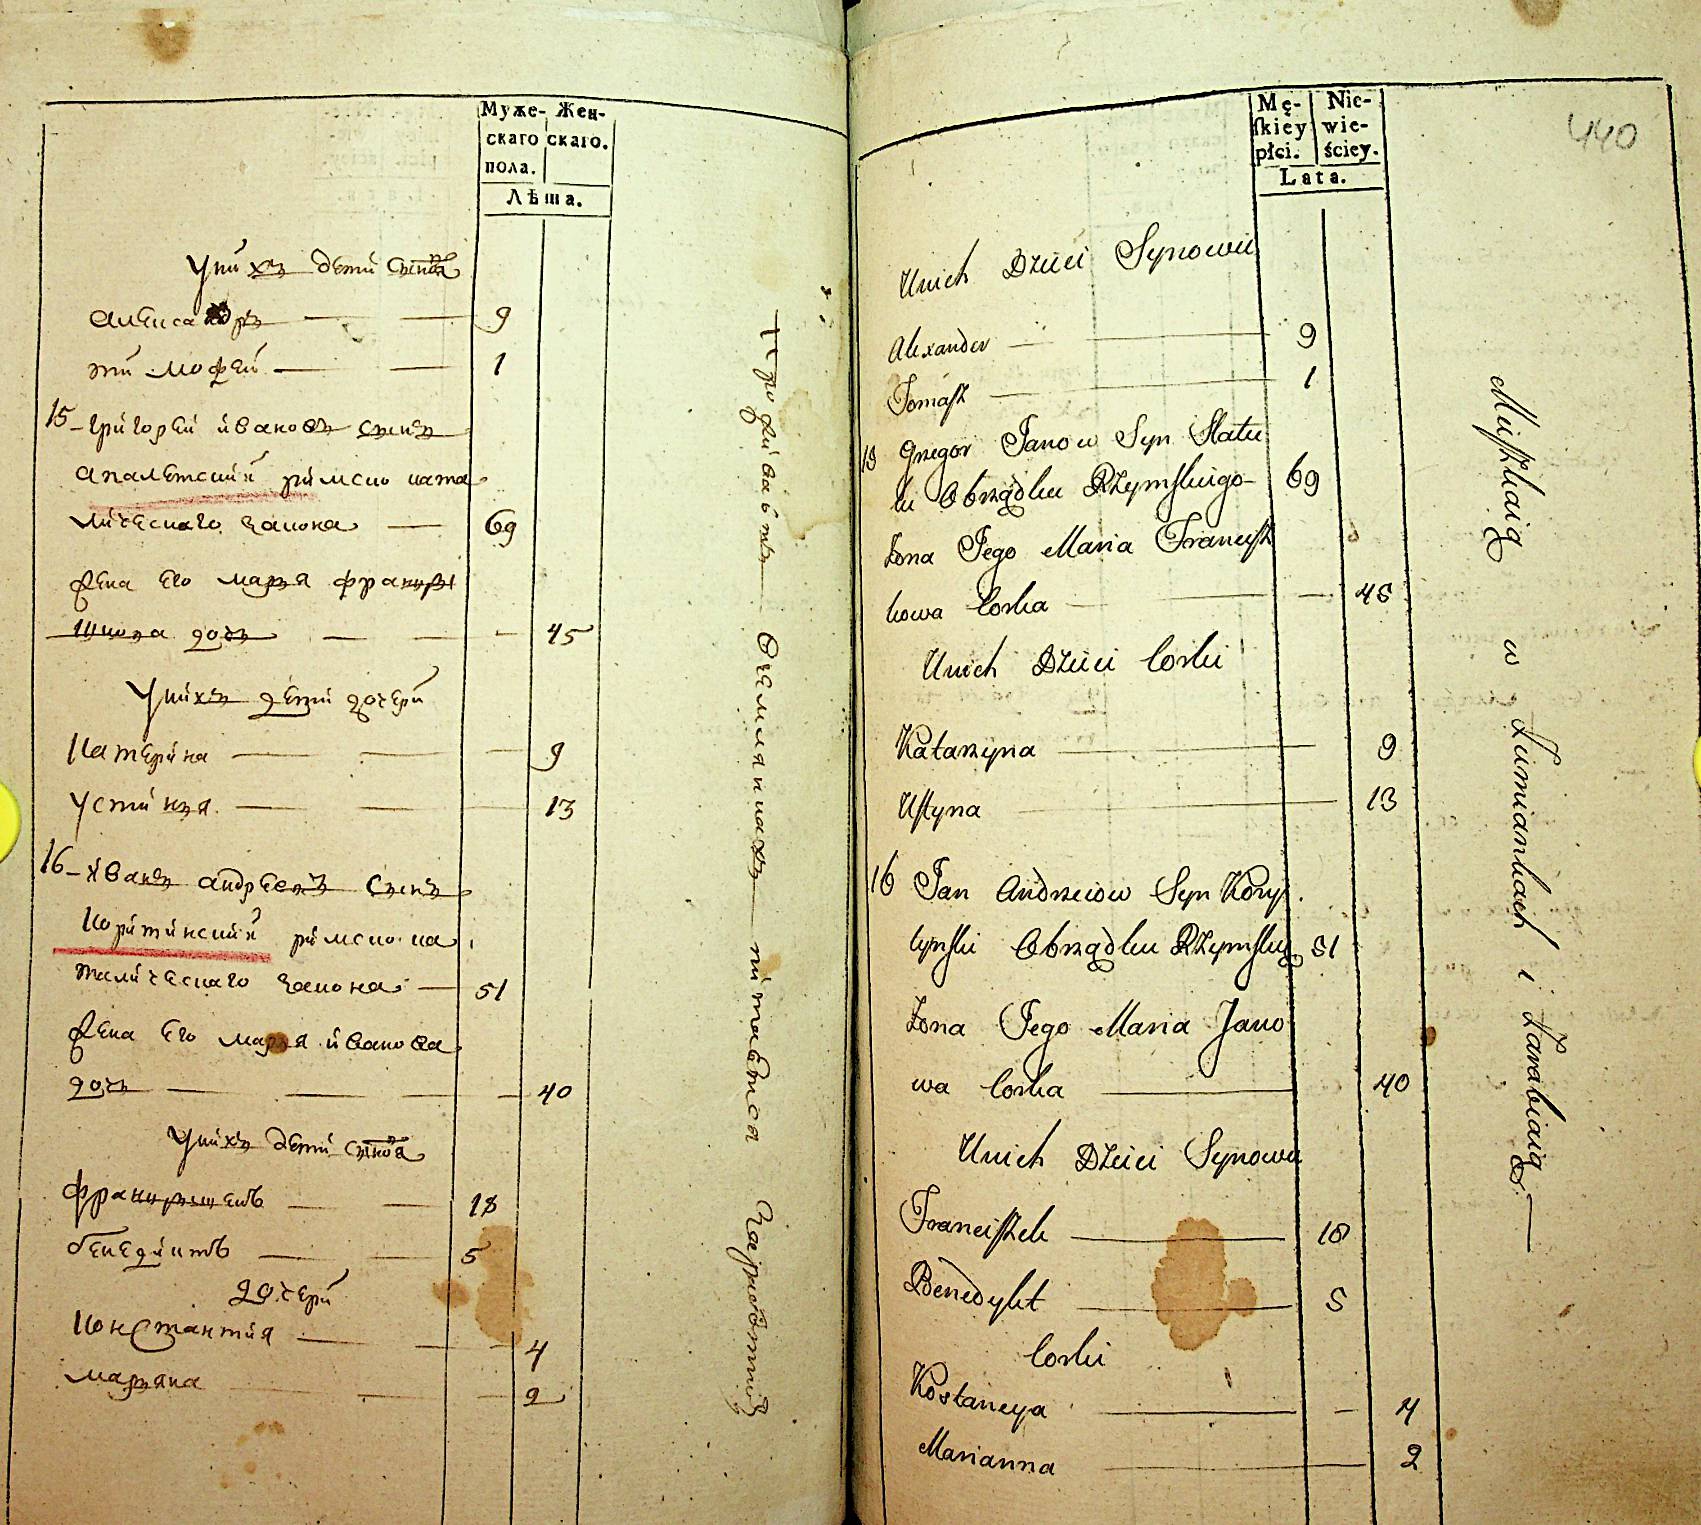 Муже-
скаго
пола.
Жен-
скаго.
Лѣта.
Унихъ дети сынова
александръ 9
тимофей 1
15 григорей ивановъ сынъ
римско ката
лическаго закона 69
жена его марья францы
шкова дочь 45
Унихъ дети дочери
катерина 9
устинья 13
16 иванъ андреевъ сынъ
коритинский римско ка
талическаго закона 51
жена его марья иванова
дочь 40
Унихъ дети сынова
францышекъ 18
бенедиктъ 5
дочери
константия 4
марьяна 2
проживають взємлянкахъ питаются заработкию
440
Mę-
ſkiey
płci.
Nie-
wie-
ściey.
Lata.
Unich Dzieci Synowie
Alexander 9
Tomaſz 1
15 Gregor Janow Syn
Obrządku Rzymſkiego 69
Żona Jego Maria Franciſz
kowa Corka 45
Unich Dzieci Corki
Katarzyna 9
Uſtyna 13
16 Jan Andrzeiow Syn Kory
tynſki Obrządku Rzymſkieg 51
Żona Jego Maria Jano
wa Corka 40
Unich Dzieci Synowie
Franciſzek 18
Benedykt 5
Corki
Kostancya 4
Marianna 2
Mieſzkaią w Ziemiankach i Zarabiaią